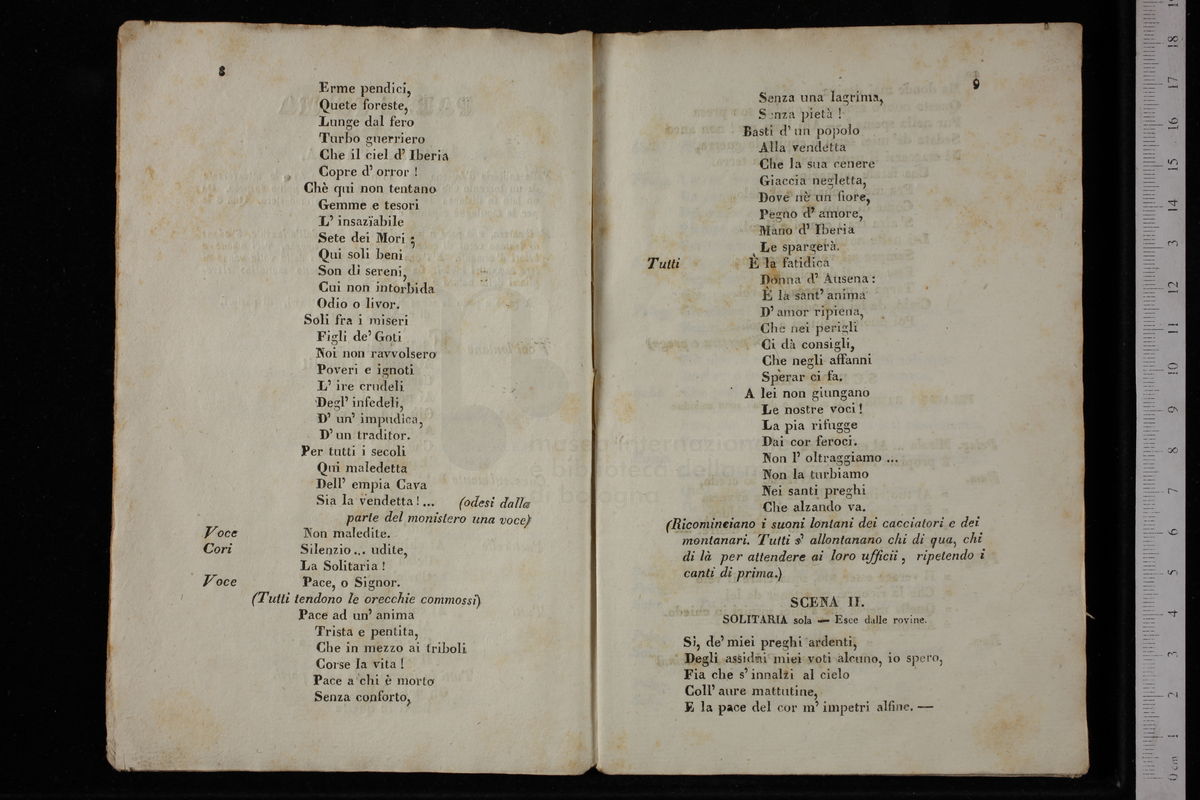 8
Erme pendici,
Quete foreste,
Lunge dal fero
Turbo guerriero
Che il ciel d' Iberia
Copre d' orror !
Chè qui non tentano
Gemme e tesori
L' insazïabile
Sete dei Mori ;
Qui soli beni
Son di sereni,
Cui non intorbida
Odio o livor.
Soli fra i miseri
Figli de' Goti
Noi non ravvolsero
Poveri e ignoti
L' ire crudeli
Degl' infedeli,
D' un' impudica,
D' un traditor.
Per tutti i secoli
Qui maledetta
Dell' empia Cava
Sia la vendetta ! ... (odesi dalla
parte del monistero una voce)
Voce Non maledite.
Cori Silenzio... udite,
La Solitaria !
Voce Pace, o Signor.
(Tutti tendono le orecchie commossi)
Pace ad un' anima
Trista e pentita,
Che in mezzo ai triboli
Corse la vita !
Pace a chi è morto
Senza conforto,
9
Senza una lagrima,
Senza pietà !
Basti d' un popolo
Alla vendetta
Che la sua cenere
Giaccia negletta,
Dove nè un fiore,
Pegno d' amore,
Mano d' Iberia
Le spargerà.
Tutti È la fatidica
Donna d' Ausena :
È la sant' anima
D' amor ripiena,
Che nei perigli
Ci dà consigli,
Che negli affanni
Sperar ci fa.
A lei non giungano
Le nostre voci !
La pia rifugge
Dai cor feroci.
Non l' oltraggiamo ...
Non la turbiamo
Nei santi preghi
Che alzando va.
(Ricominciano i suoni lontani dei cacciatori e dei
montanari. Tutti s' allontanano chi di qua, chi
di là per attendere ai loro ufficii , ripetendo i
canti di prima.)
SCENA II.
SOLITARIA sola — Esce dalle rovine.
Si, de' miei preghi ardenti,
Degli assidui miei voti alcuno, io spero,
Fia che s' innalzi al cielo
Coll' aure mattutine,
E la pace del cor m' impetri alfine. —
museo internazionale
e biblioteca della
di bologna